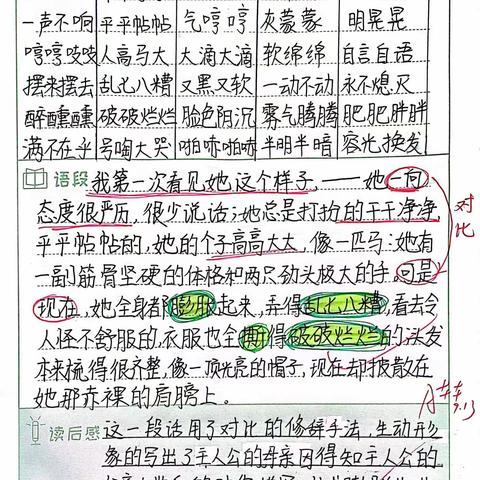 一声不响 平平帖帖 气哼哼 灰蒙蒙 明晃晃
哼哼唧唧 人高马大 大滴大滴 软绵绵 自言自语
摆来摆去 乱七八糟 又黑又软 一动不动 永不熄灭
醉醺醺 破破烂烂 脸色阴沉 雾气腾腾 肥肥胖胖
满不在乎 号啕大哭 啪嗒啪嗒 半明半暗 容光焕发
语段 我第一次看见她这个样子,——她一向
态度很严历,很少说话;她总是打扮的干干净净,
对比
平平帖帖的,她的个子高高大大,像一匹马:她有
一副筋骨坚硬的体格和两只劲头极大的手。可是
现在,她全身都膨胀起来,弄得乱七八糟,看去令
人怪不舒服的,衣服也全撕得破破烂烂的,头发
本来梳得很齐整,像一顶光亮的帽子,现在却披散在
她那赤裸的肩膀上。
读后感 这一段话用了对比的修辞手法,生动形
象的写出了主人公的母亲因得知主人公的